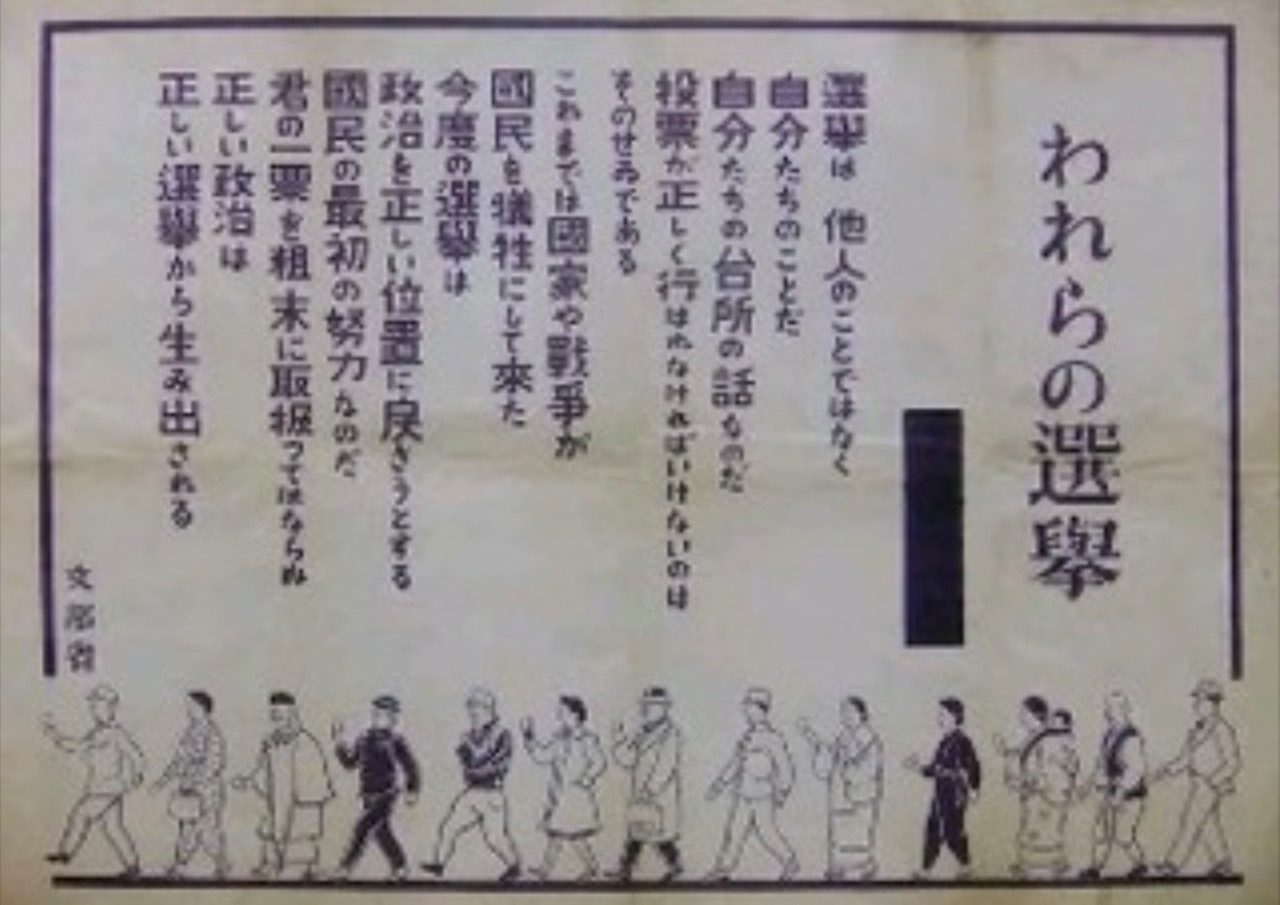 われらの選擧
選擧は 他人のことではなく
自分たちのことだ
自分たちの台所の話なのだ
投票が正しく行はれなければいけないのは
そのせゐである
これまでは國家や戰爭が
國民を犠牲にして來た
今度の選擧は
政治を正しい位置に戻さうとする
國民の最初の努力なのだ
君の一票を粗末に取扱つてはならぬ
正しい政治は
正しい選擧から生み出される
文部省